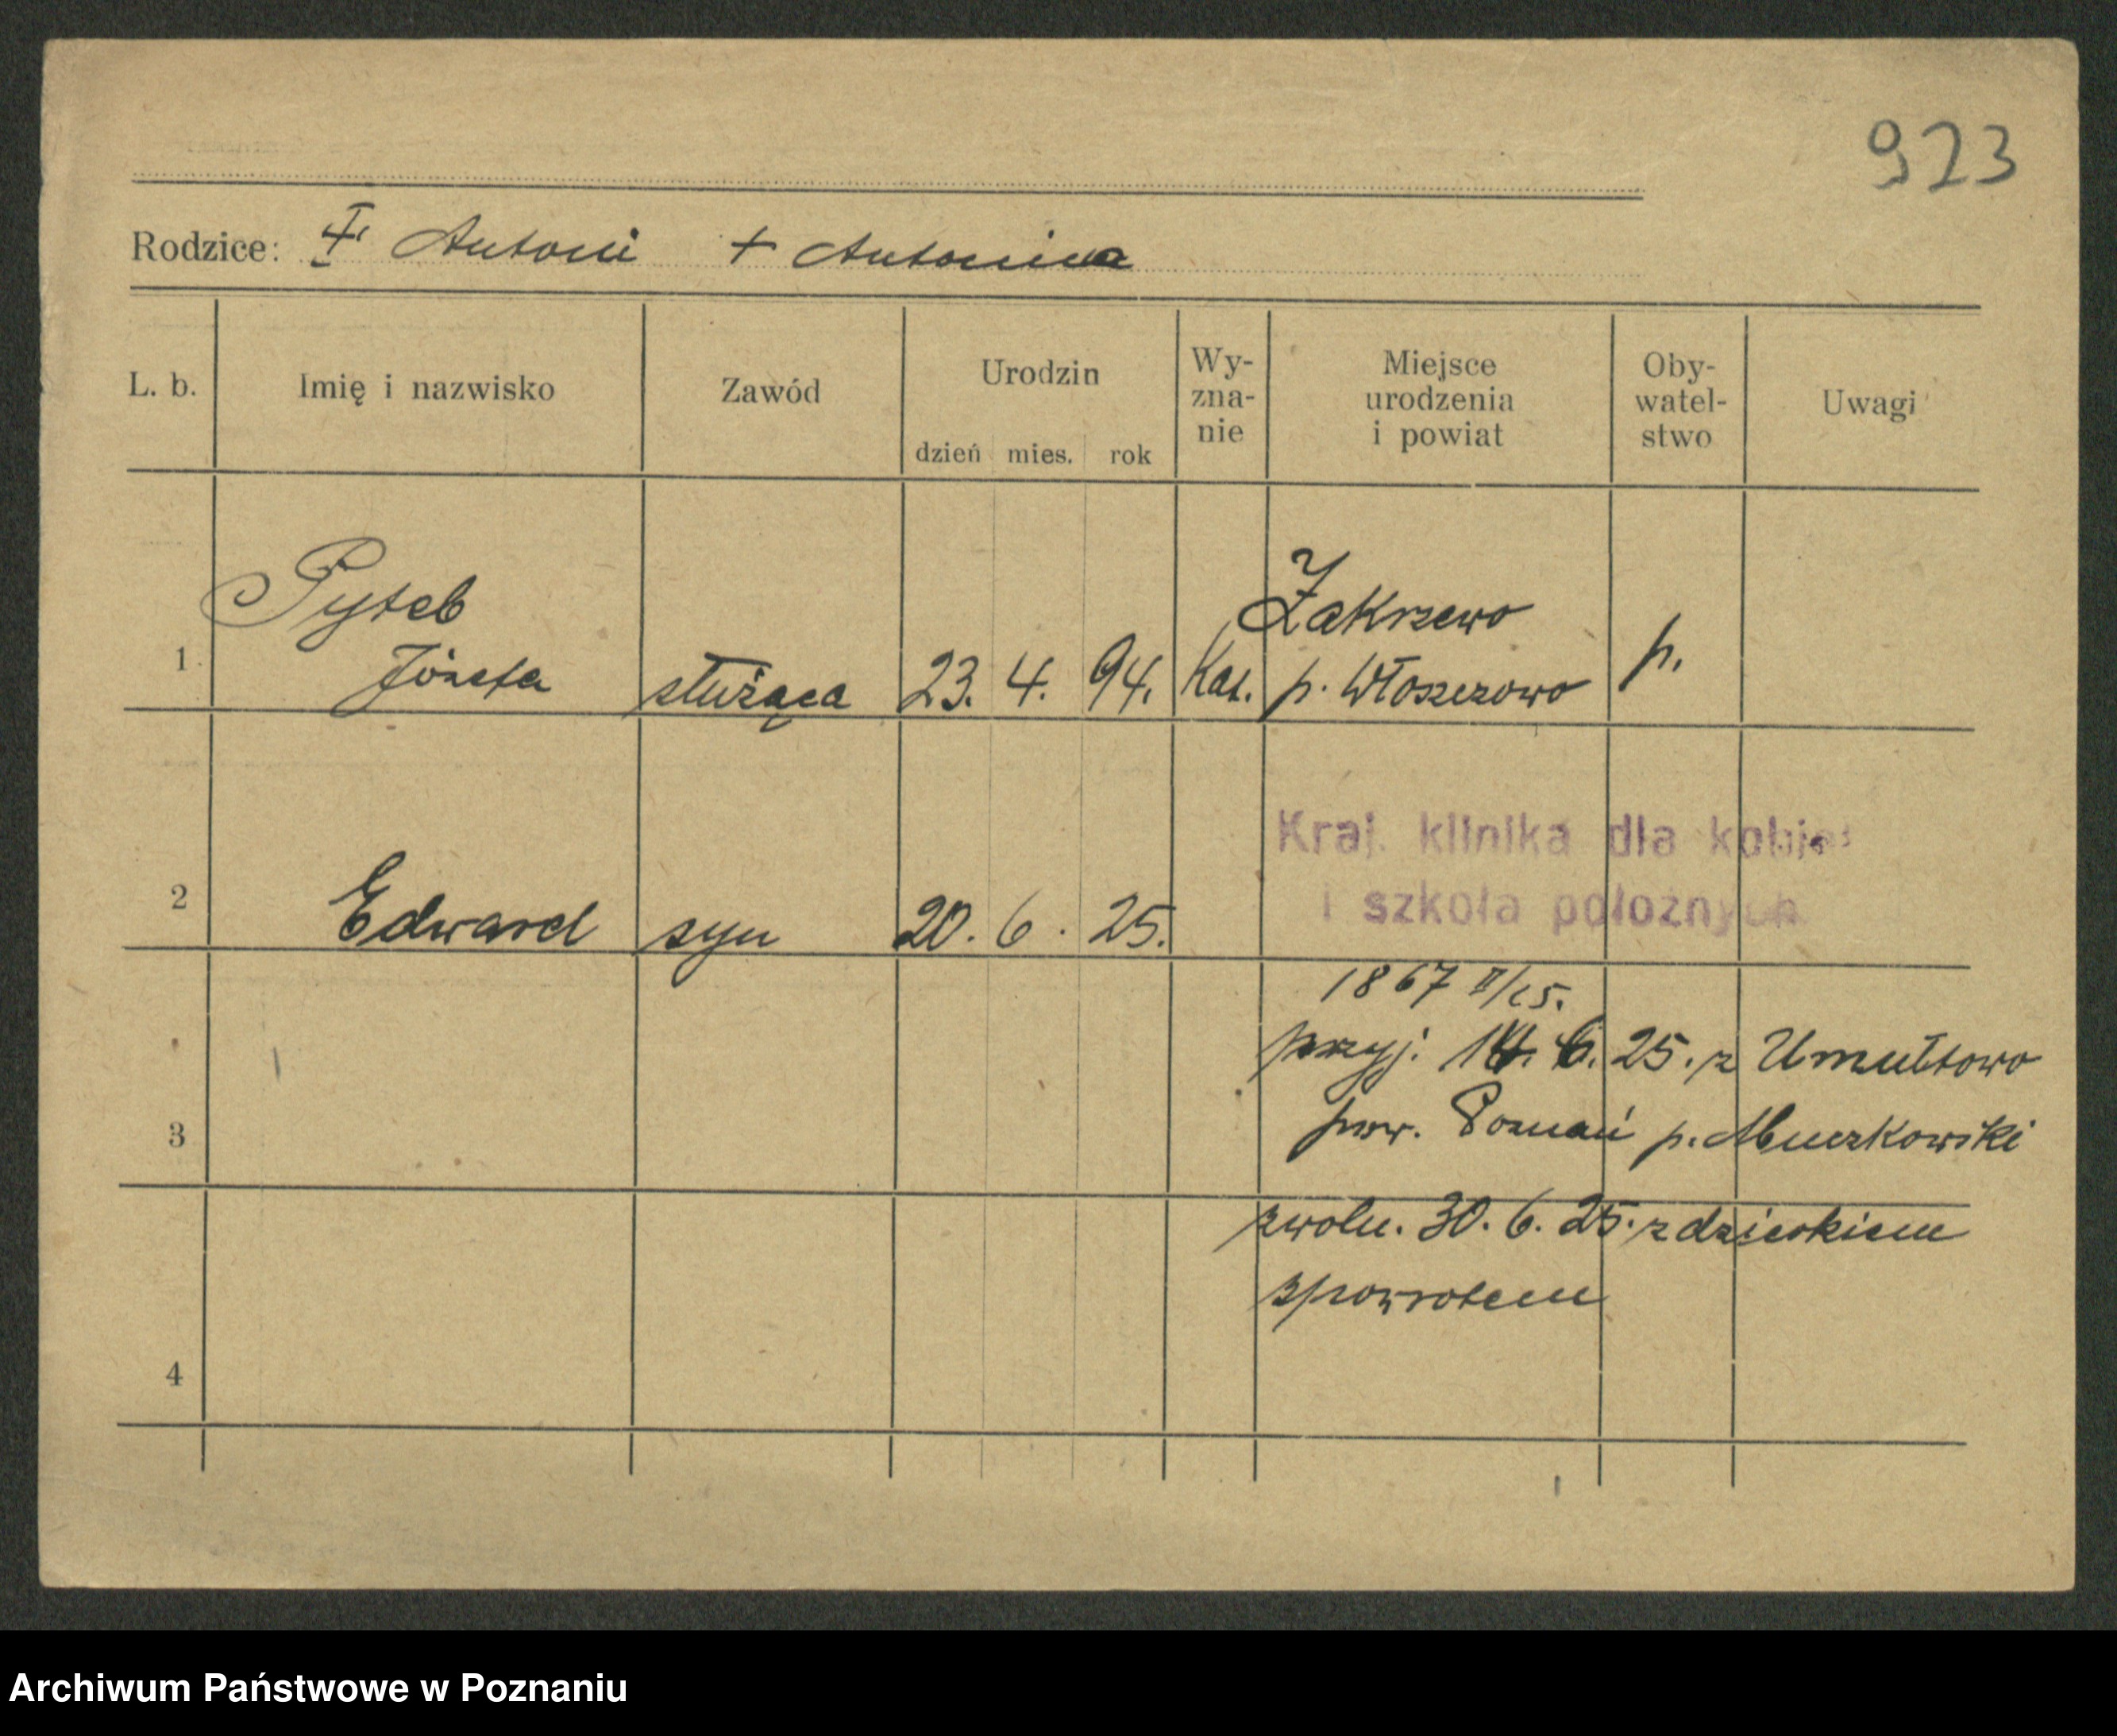 923
Rodzice: I Antoni + Antonina
L. b. Imię i nazwisko Zawód Urodzin dzień mies. rok Wy-zna-nie Miejsce urodzenia i powiat Oby-watel-stwo Uwagi
Pyteb Zakrzewo
1 Józefa służąca 23. 4. 94. Kat. p. Włoszczowo p.
Kraj. klinika dla kobiet
i szkoła położnych
2 Edward syn 20. 6. 25.
1867 II/25.
przyj. 25. z Umultowo
3 pow. Poznań p.
zwoln. 30. 6. 25. z dzieckiem
spowrotem
4
Archiwum Państwowe w Poznaniu